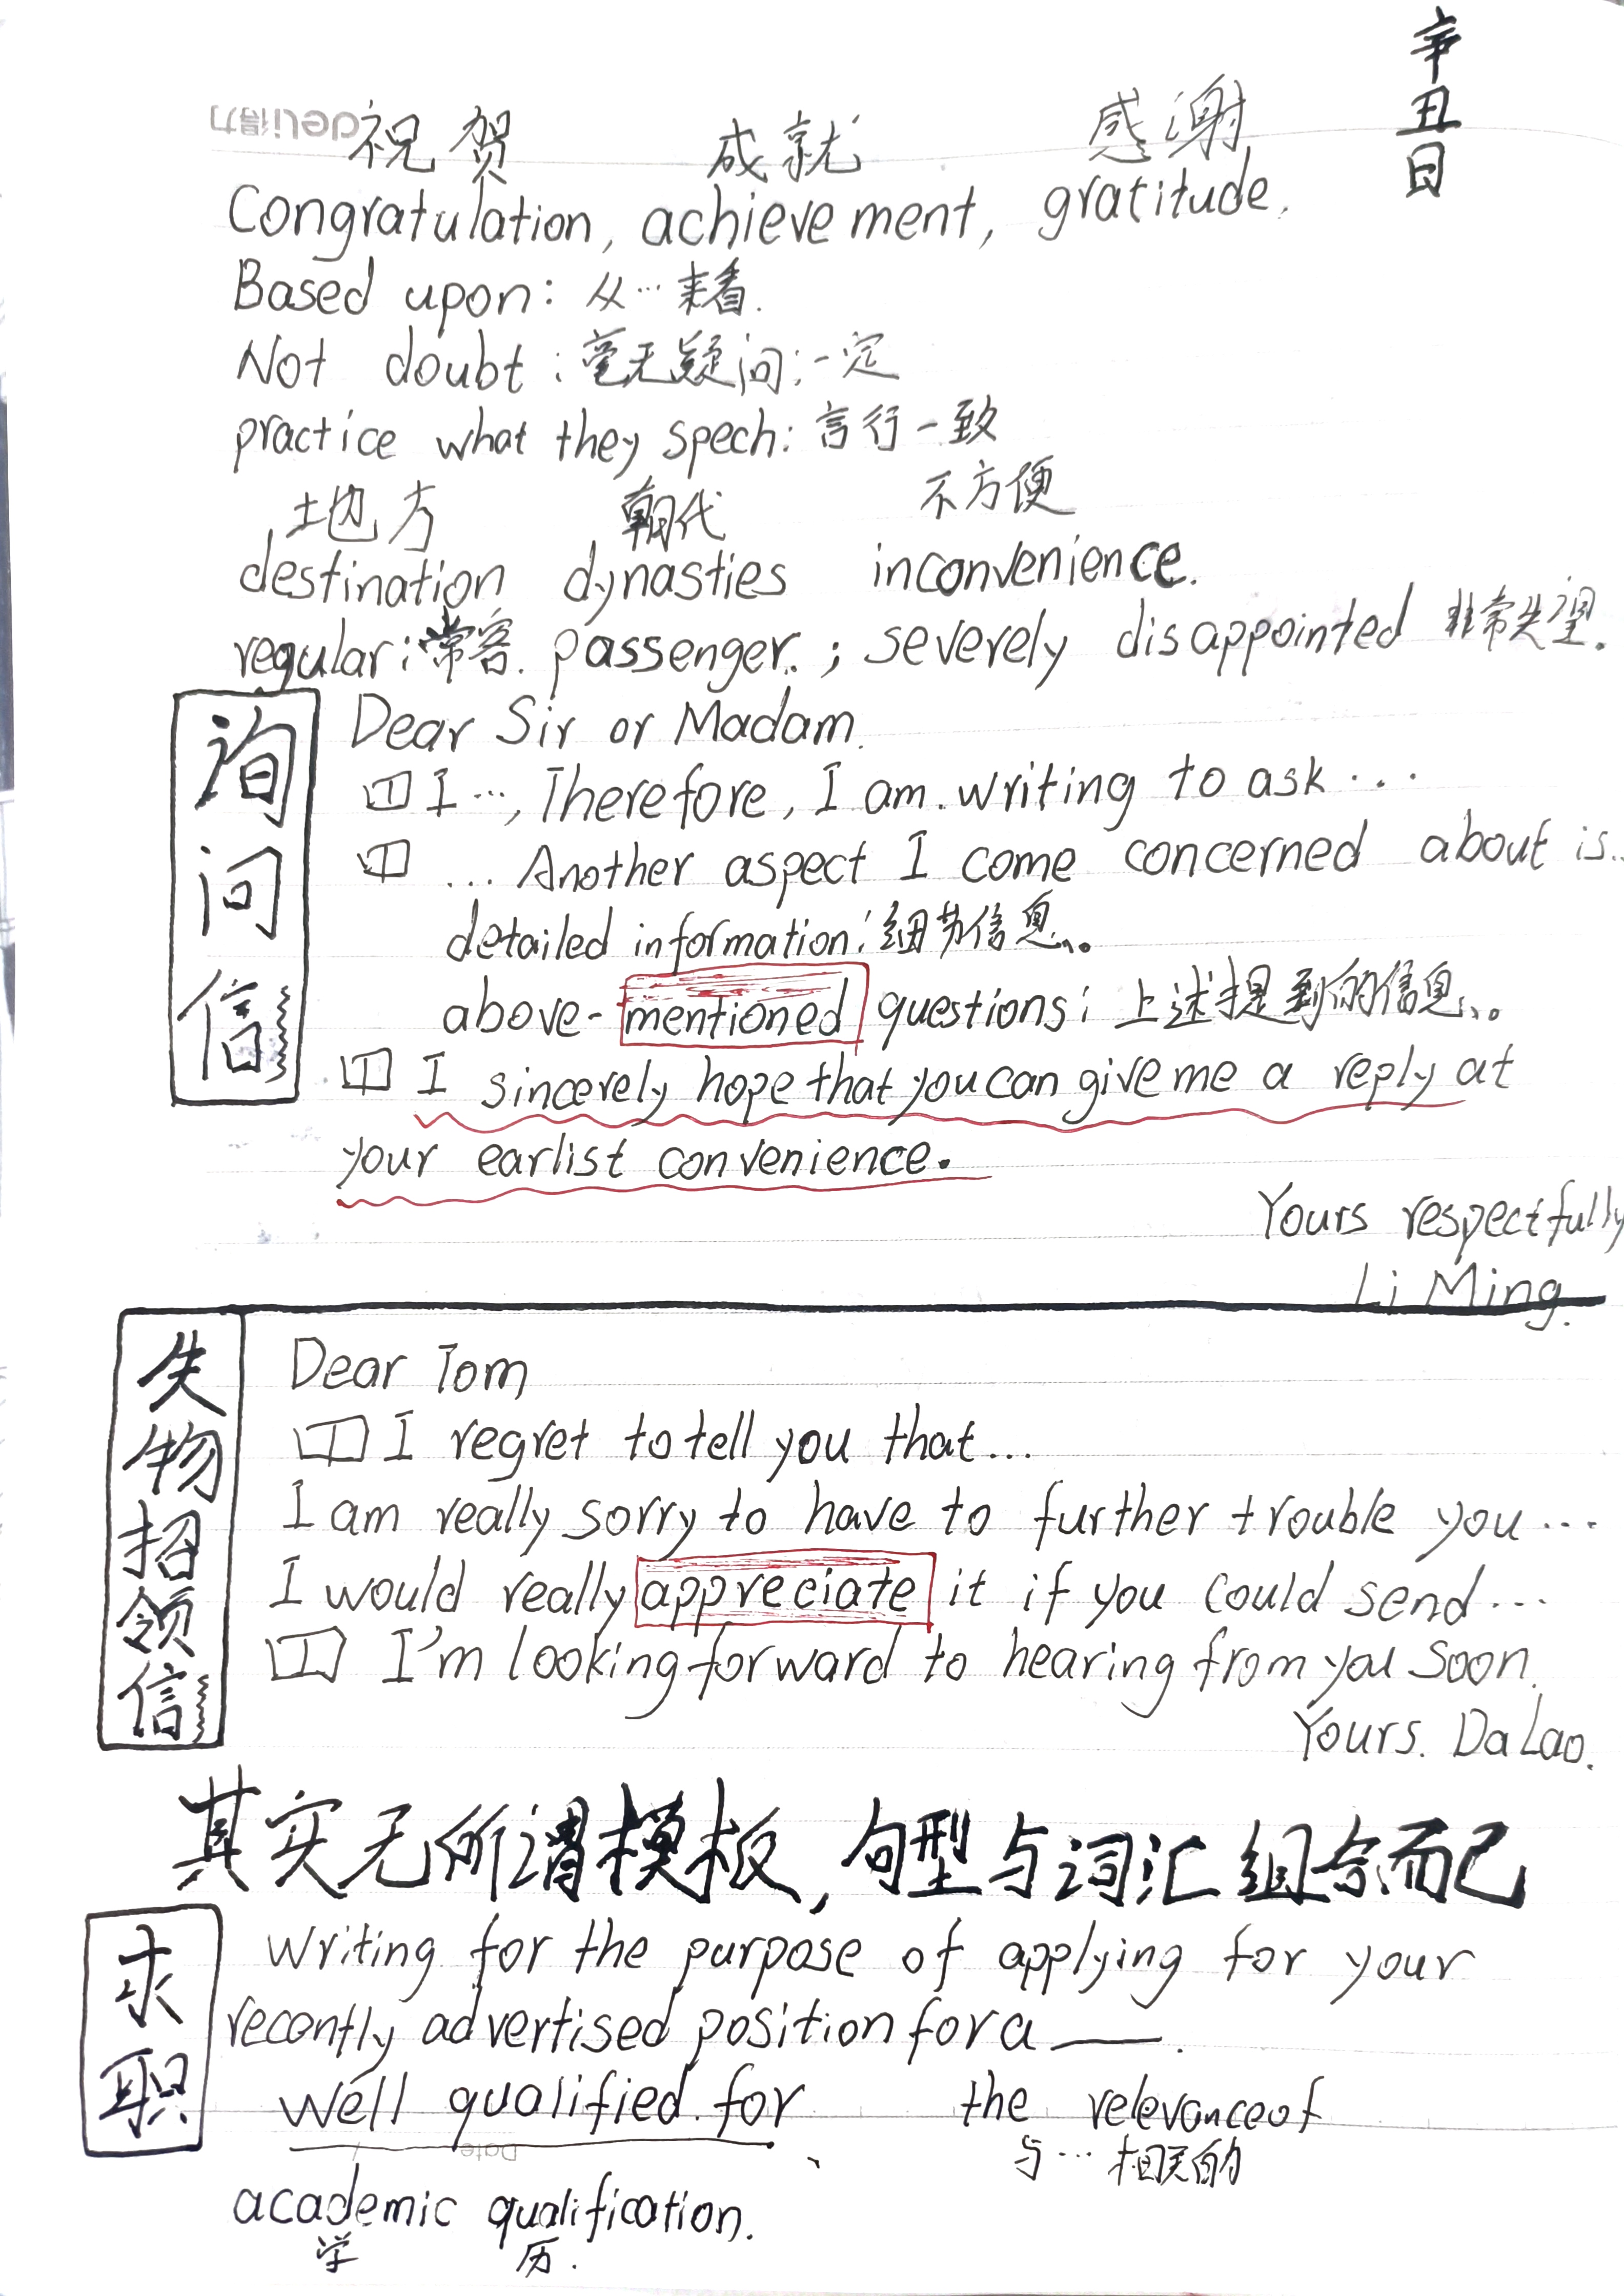 辛丑日
deli得力
祝贺 成就 感谢
Congratulation, achievement, gratitude.
Based upon: 从…来看.
Not doubt: 毫无疑问;一定
practice what they spech: 言行一致
地方 朝代 不方便
destination dynasties inconvenience.
regular:常客. passenger.; severely disappointed 非常失望.
询问信
Dear Sir or Madam.
I …, Therefore, I am. writing to ask …
… Another aspect I come concerned about is..
detailed information: 细节信息、。
above-mentioned questions: 上述提到的信息、。
I sincerely hope that you can give me a reply at
your earlist convenience.
Yours respectfully
Li Ming.
失物招领信
Dear Tom
I regret to tell you that...
I am really sorry to have to further trouble you ...
I would really appreciate it if you could send ...
I'm looking forward to hearing from you soon.
Yours. Da Lao.
其实无所谓模板,句型与词汇组合而已
求职
writing for the purpose of applying for your
recently advertised position for a ——.
well qualified for、 the relevance of
Date
与…相关的
academic qualification.
学 历.